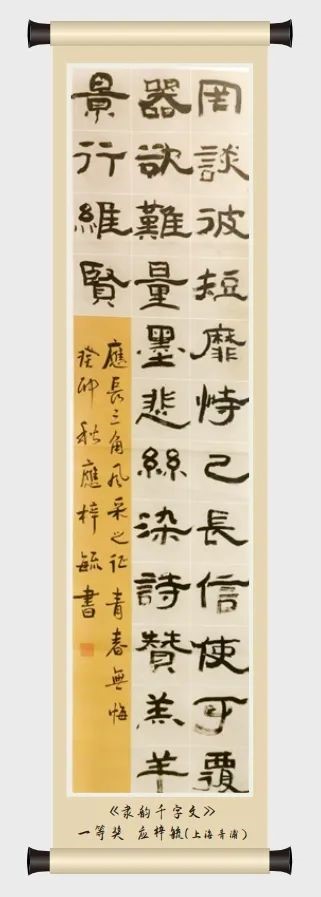 罔談彼短靡恃己長信使可覆
器欲難量墨悲絲染詩贊羔羊
景行維賢
應長三角风采之征青春無悔
癸卯秋應梓毓書
《隶韵千字文》
一等奖 应梓毓(上海青浦)